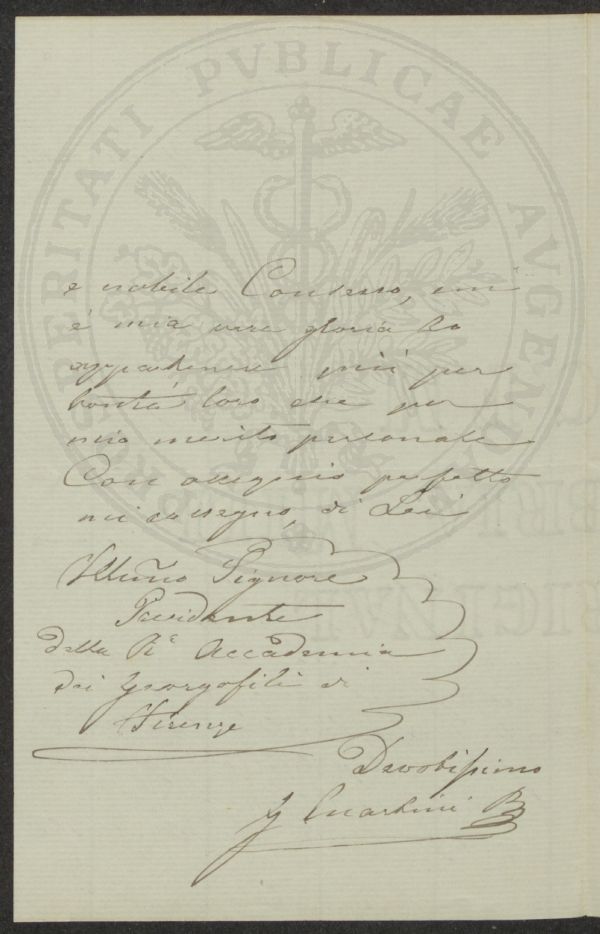 PROSPERITATI PVBLICAE AVGENDAE
e nobile Consesso, cui
è mia vera gloria lo
appartenere più per
bontà loro che per
mio merito personale
Con ossequio perfetto
mi rassegno, di Lei
Illmo Signore
Presidente
della Rª Accademia
dei Georgofili di
Firenze
Devotissimo